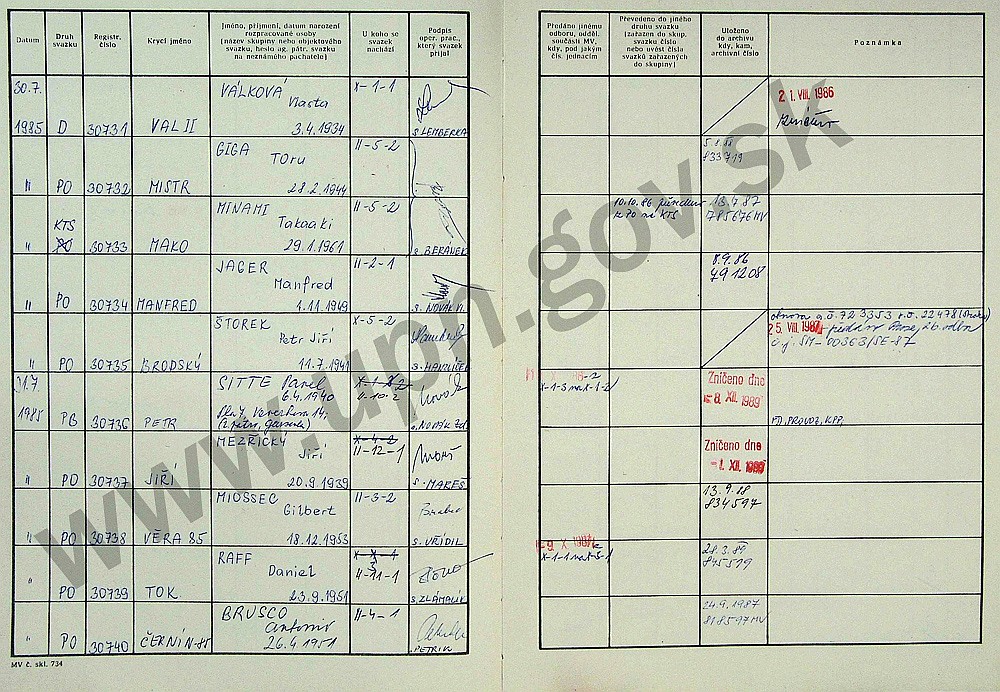 Datum
Druh svazku
Registr. číslo
Krycí jméno
Jméno, příjmení, datum narození
rozpracované osoby
(název skupiny nebo objektového
svazku, heslo ag. pátr. svazku
na neznámého pachatele)
U koho se
svazek
nachází
Podpis
oper. prac.,
který svazek
přijal
Předáno jinému
odboru, odděl.
součásti MV,
kdy, pod jakým
čís. jednacím
Převedeno do jiného
druhu svazku
(zařazen do skup.
svazku číslo
nebo uvést čísla
svazků zařazených
do skupiny)
Uloženo
do archivu
kdy, kam,
archivní číslo
Poznámka
30.7.
1985 D 30731 VAL II
VÁLKOVÁ
Vlasta
3.4.1934
X-1-1
s. LEMBERKA
2 1. VIII. 1986
" PO 30732 MISTR
GIGA
TORU
28.2.1944
II-5-2
5.8.88
833719
KTS
" PO 30733 MAKO
MINAMI
Takaaki
29.1.1961
II-5-2
s. BERÁNEK
10.10.86
z PO na KTS
13.7.87
785676 MV
" PO 30734 MANFRED
JAGER
Manfred
1.11.1949
II-2-1
s. NOVÁK
8.9.86
791208
" PO 30735 BRODSKÝ
ŠTOREK
Petr Jiří
11.7.1941
X-5-2
s. HANZLÍČEK
25. VIII. 1987
č.j. SM-00363/SE-87
31.7.
1985 PB 30736 PETR
SITTE Pavel
6.4.1940
II-10-2
s. NOVÁK Zd.
X-1-3 na X-1-2
Zničeno dne
- 8. XII. 1989
PROVOZ, KPP,
" PO 30737 JIŘÍ
MEZŘICKÝ
Jiří
20.9.1939
X-4-2
II-12-1
s. MAREŠ
Zničeno dne
- 1. XII. 1989
" PO 30738 VĚRA 85
MIOSSEC
Gilbert
18.12.1953
II-3-2
s. VŘÍDIL
13.9.88
834597
" PO 30739 TOK
RAFF
Daniel
23.9.1951
II-11-1
s. ZLÁMALÍK
28.3.89
845519
" PO 30740 ČERNÍN-85
BRUSCO
Antonio
26.4.1951
II-4-1
s. PETRIK
24.9.1987
818597 MV
MV č. skl. 734
www.upn.gov.sk